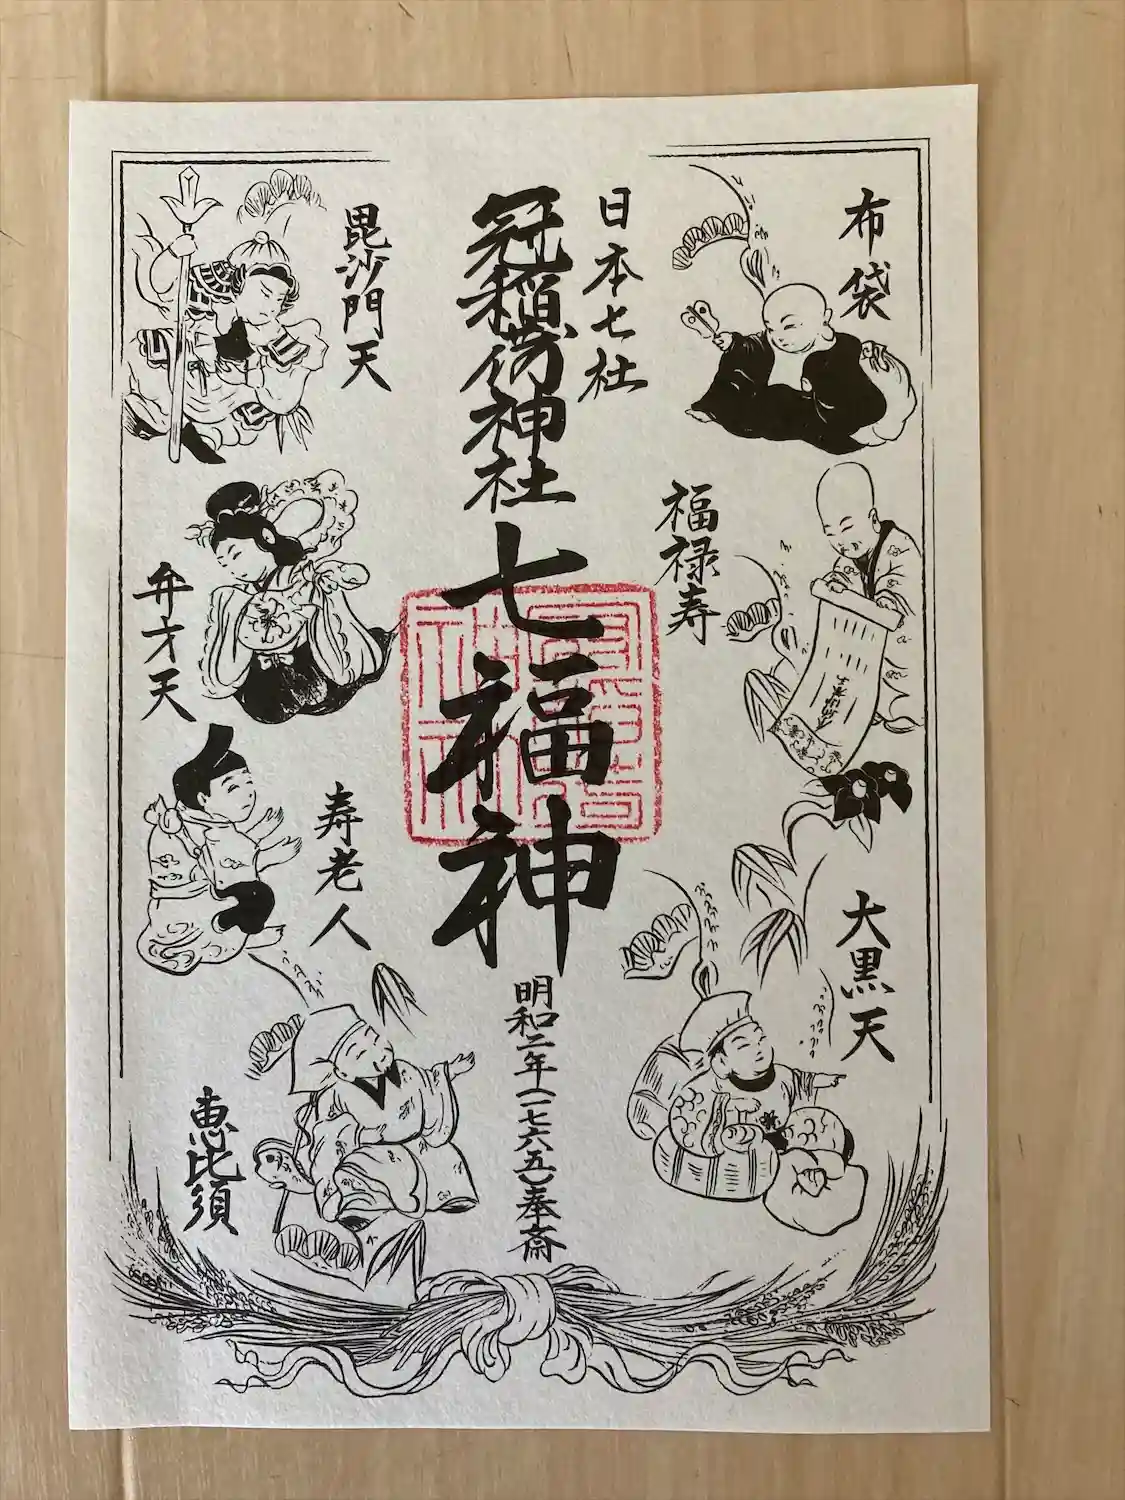 日本七社
冠稲荷神社
七福神
明和二年(一七六五)奉斎
布袋
福禄寿
大黒天
毘沙門天
弁才天
寿老人
恵比須